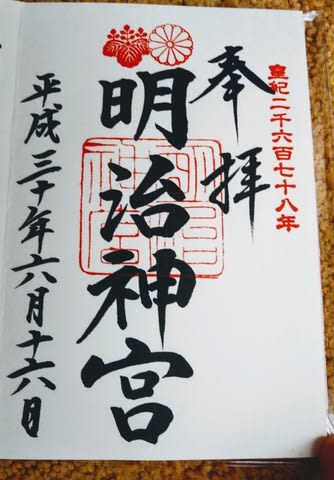 皇紀二千六百七十八年
奉拝
明治神宮
平成三十年六月十六日